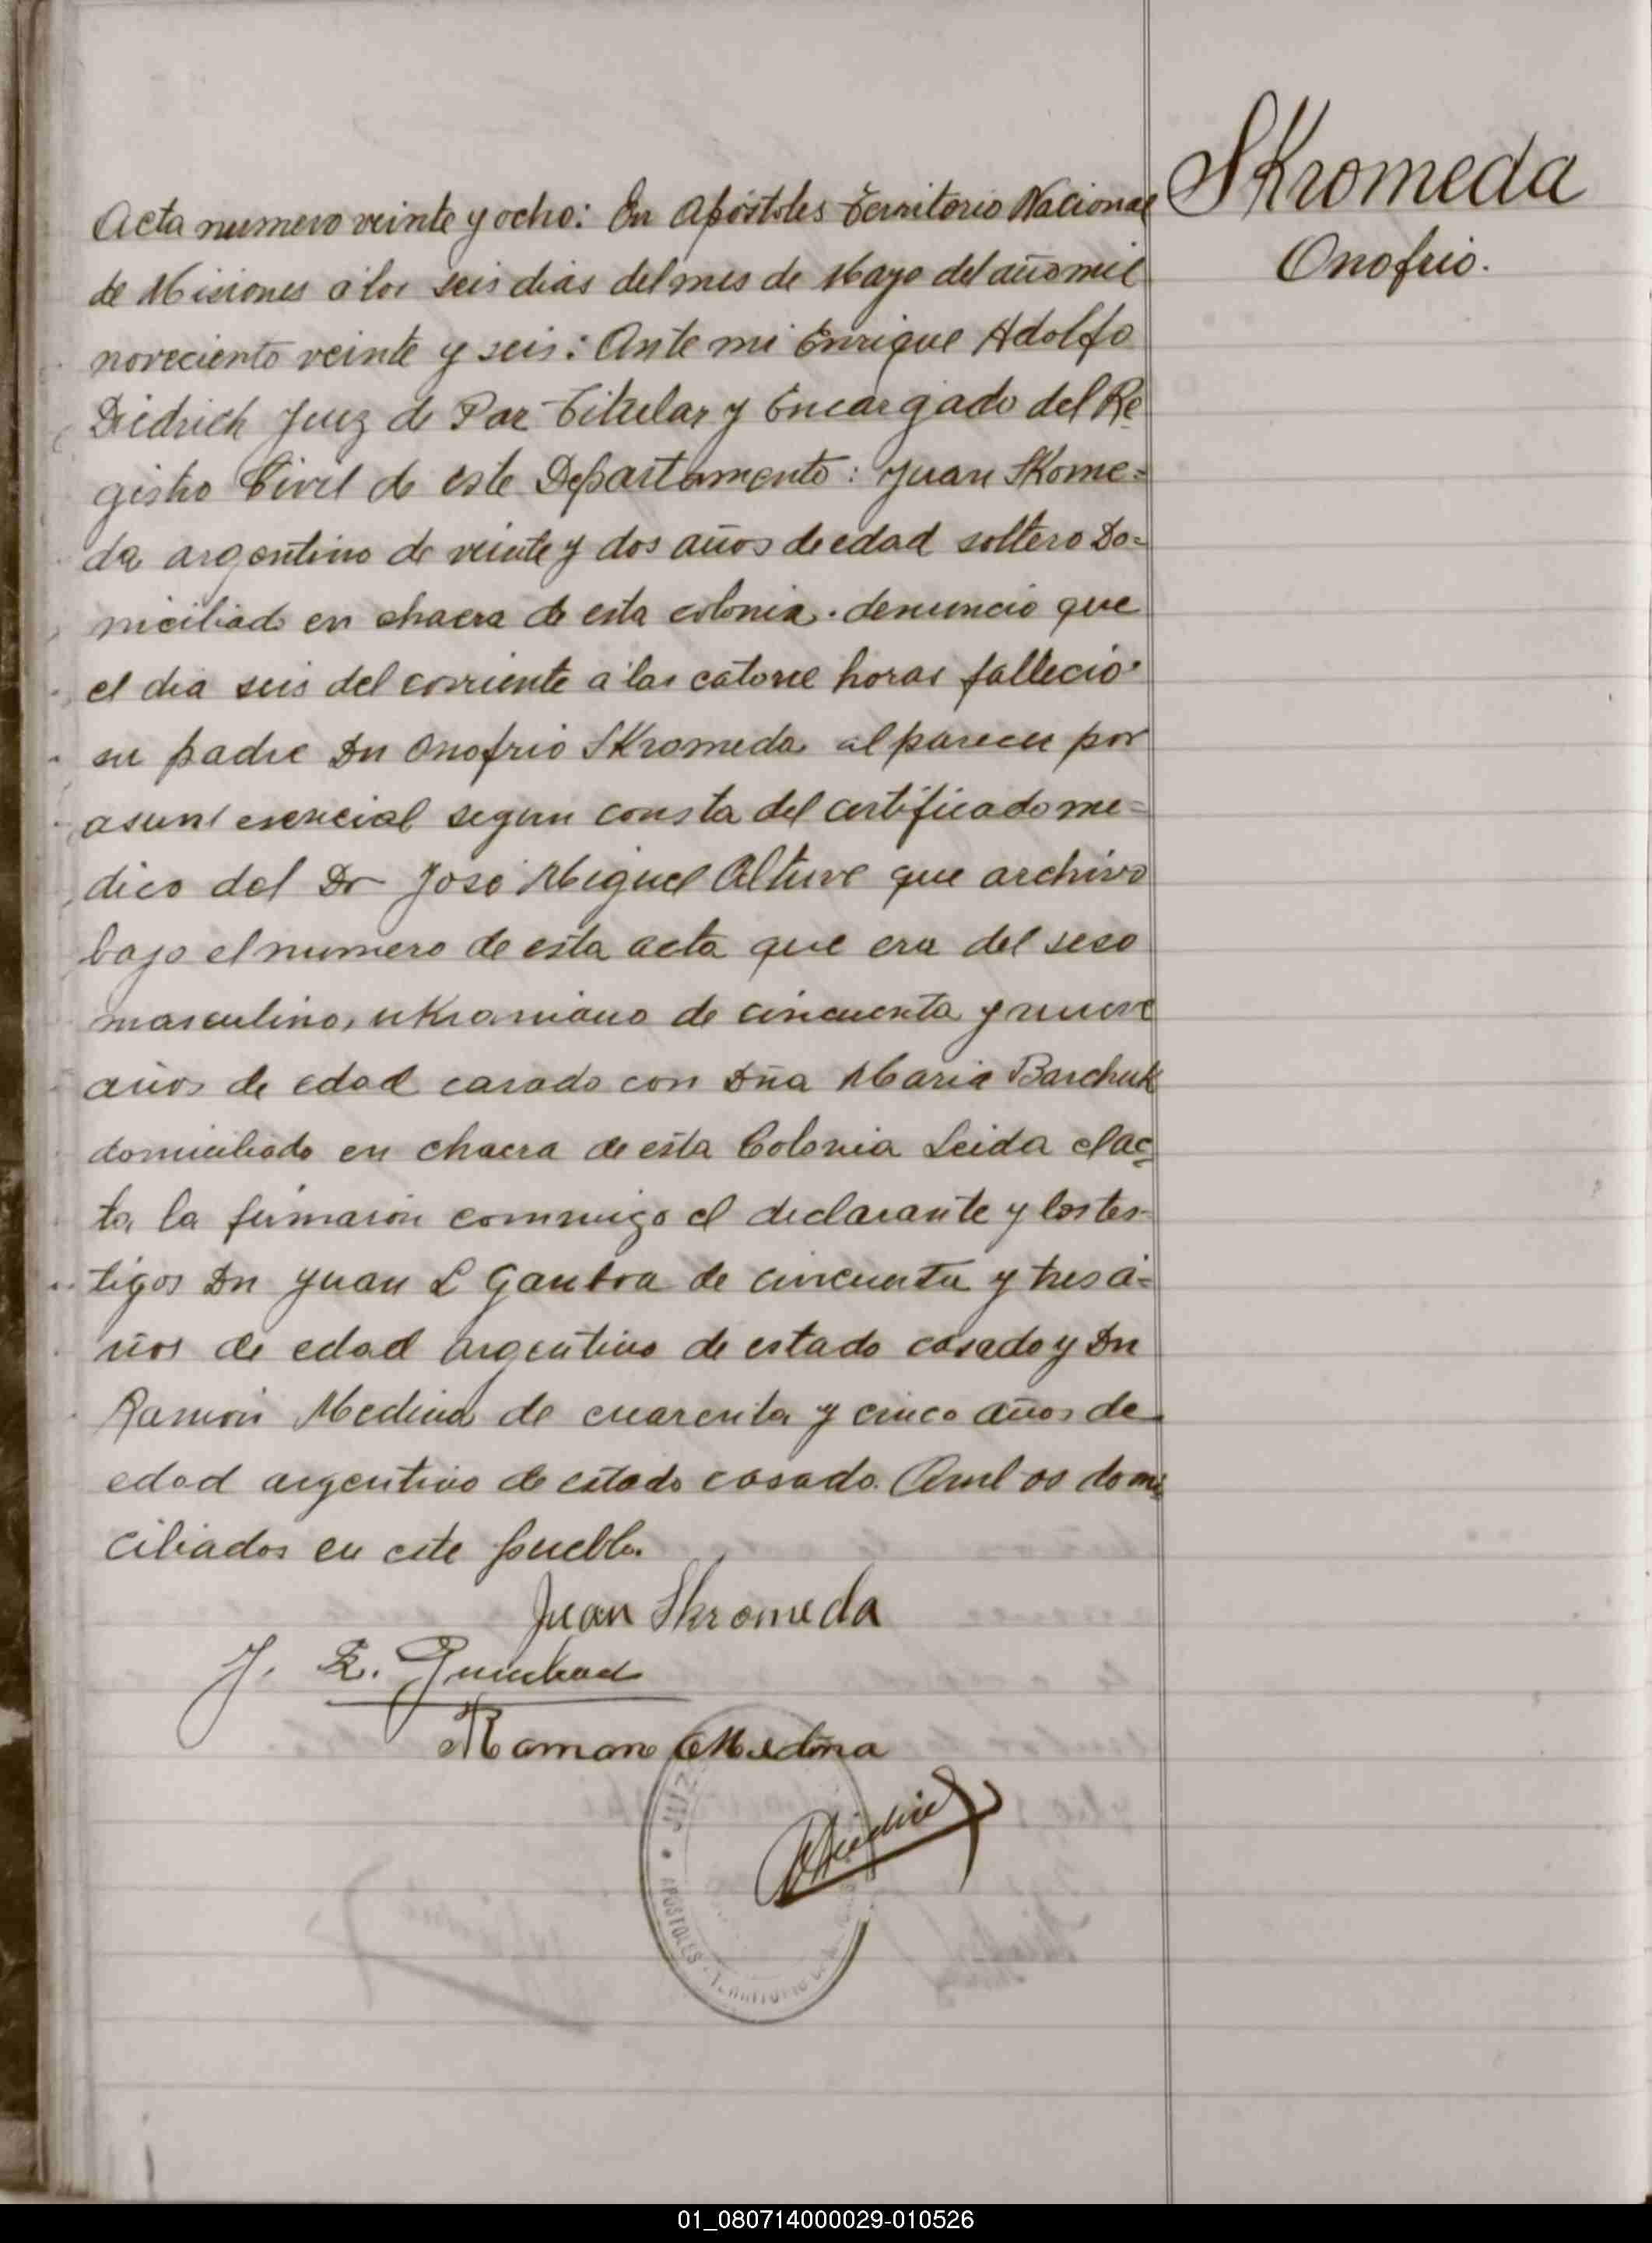 Skromeda
Onofrio.
Acta numero veinte y ocho: En Apóstoles Territorio Nacional
de Misiones a los seis dias del mes de Mayo del año mil
noveciento veinte y seis: Ante mi Enrique Adolfo
Diedrich Juez de Paz Titular y Encargado del Re
gistro Civil de este Departamento: Juan Skome=
da argentino de veinte y dos años de edad soltero Do=
miciliado en chacra de esta colonia. denuncio que
el dia seis del corriente a las catorce horas fallecio
su padre Dn Onofrio Skromeda al parecer por
esencial segun consta del certificado me=
dico del Dr José Miguel Alture que archivo
bajo el numero de esta acta que era del sexo
masculino, ukraniano de cincuenta y nueve
años de edad casado con Dña Maria Barchuk
domiciliado en chacra de esta Colonia Leida el ac=
ta la firmaron conmigo el declarante y los tes-
tigos Dn Juan L de cincuenta y tres a=
ños de edad argentino de estado casado y Dn
Ramón Medina de cuarenta y cinco años de
edad argentino de estado casado. Ambos domi
ciliados en este pueblo.
Juan Skromeda
J. L.
Ramon Medina
APOSTOLES - TERRITORIO DE
01_080714000029-010526